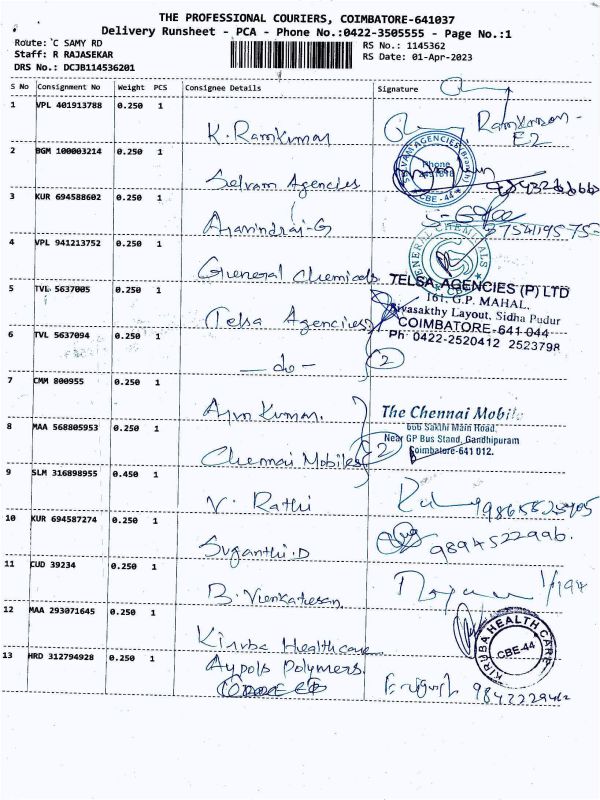 THE PROFESSIONAL COURIERS, COIMBATORE-641037
Delivery Runsheet - PCA - Phone No.:0422-3505555 - Page No.:1
Route: C SAMY RD
RS No.: 1145362
Staff: R RAJASEKAR
RS Date: 01-Apr-2023
DRS No.: DCJB114536201
S No Consignment No Weight PCS Consignee Details Signature
1 VPL 401913788 0.250 1
K. Ramkumar Ramkumar - E2
2 BGM 100003214 0.250 1
Selvam Agencies
SELVAM AGENCIES Phone CBE-44
3 KUR 694588602 0.250 1
Aravindraj-G
4 VPL 941213752 0.250 1
General Chemicals
GENERAL CHEMICALS
5 TVL 5637005 0.250 1
Telsa Agencies
TELSA AGENCIES (P) LTD
161, G.P. MAHAL,
Sivasakthy Layout, Sidha Pudur
COIMBATORE-641 044
Ph 0422-2520412 2523798
6 TVL 5637094 0.250 1
- do - 2
7 CMM 800955 0.250 1
Arun Kumar.
8 MAA 568805953 0.250 1
Chennai Mobiles 2
The Chennai Mobile
606 Sakthi Main Road,
Near GP Bus Stand, Gandhipuram
Coimbatore-641 012.
9 SLM 316898955 0.450 1
V. Rathi
10 KUR 694587274 0.250 1
Suganthi.D 9894522996.
11 CUD 39234 0.250 1
B. Venkatesan
12 MAA 293071645 0.250 1
Kiruba Healthcare
KIRUBA HEALTH CARE CBE-44
13 HRD 312794928 0.250 1
Aypols Polymers